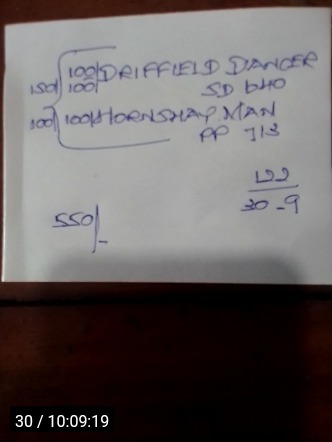 100/ DRIFFIELD DANCER
150/ 100/ SD 640
100/ 100/ HORNSHAY MAN
PP 713
122
30-9
550/-
30 / 10:09:19